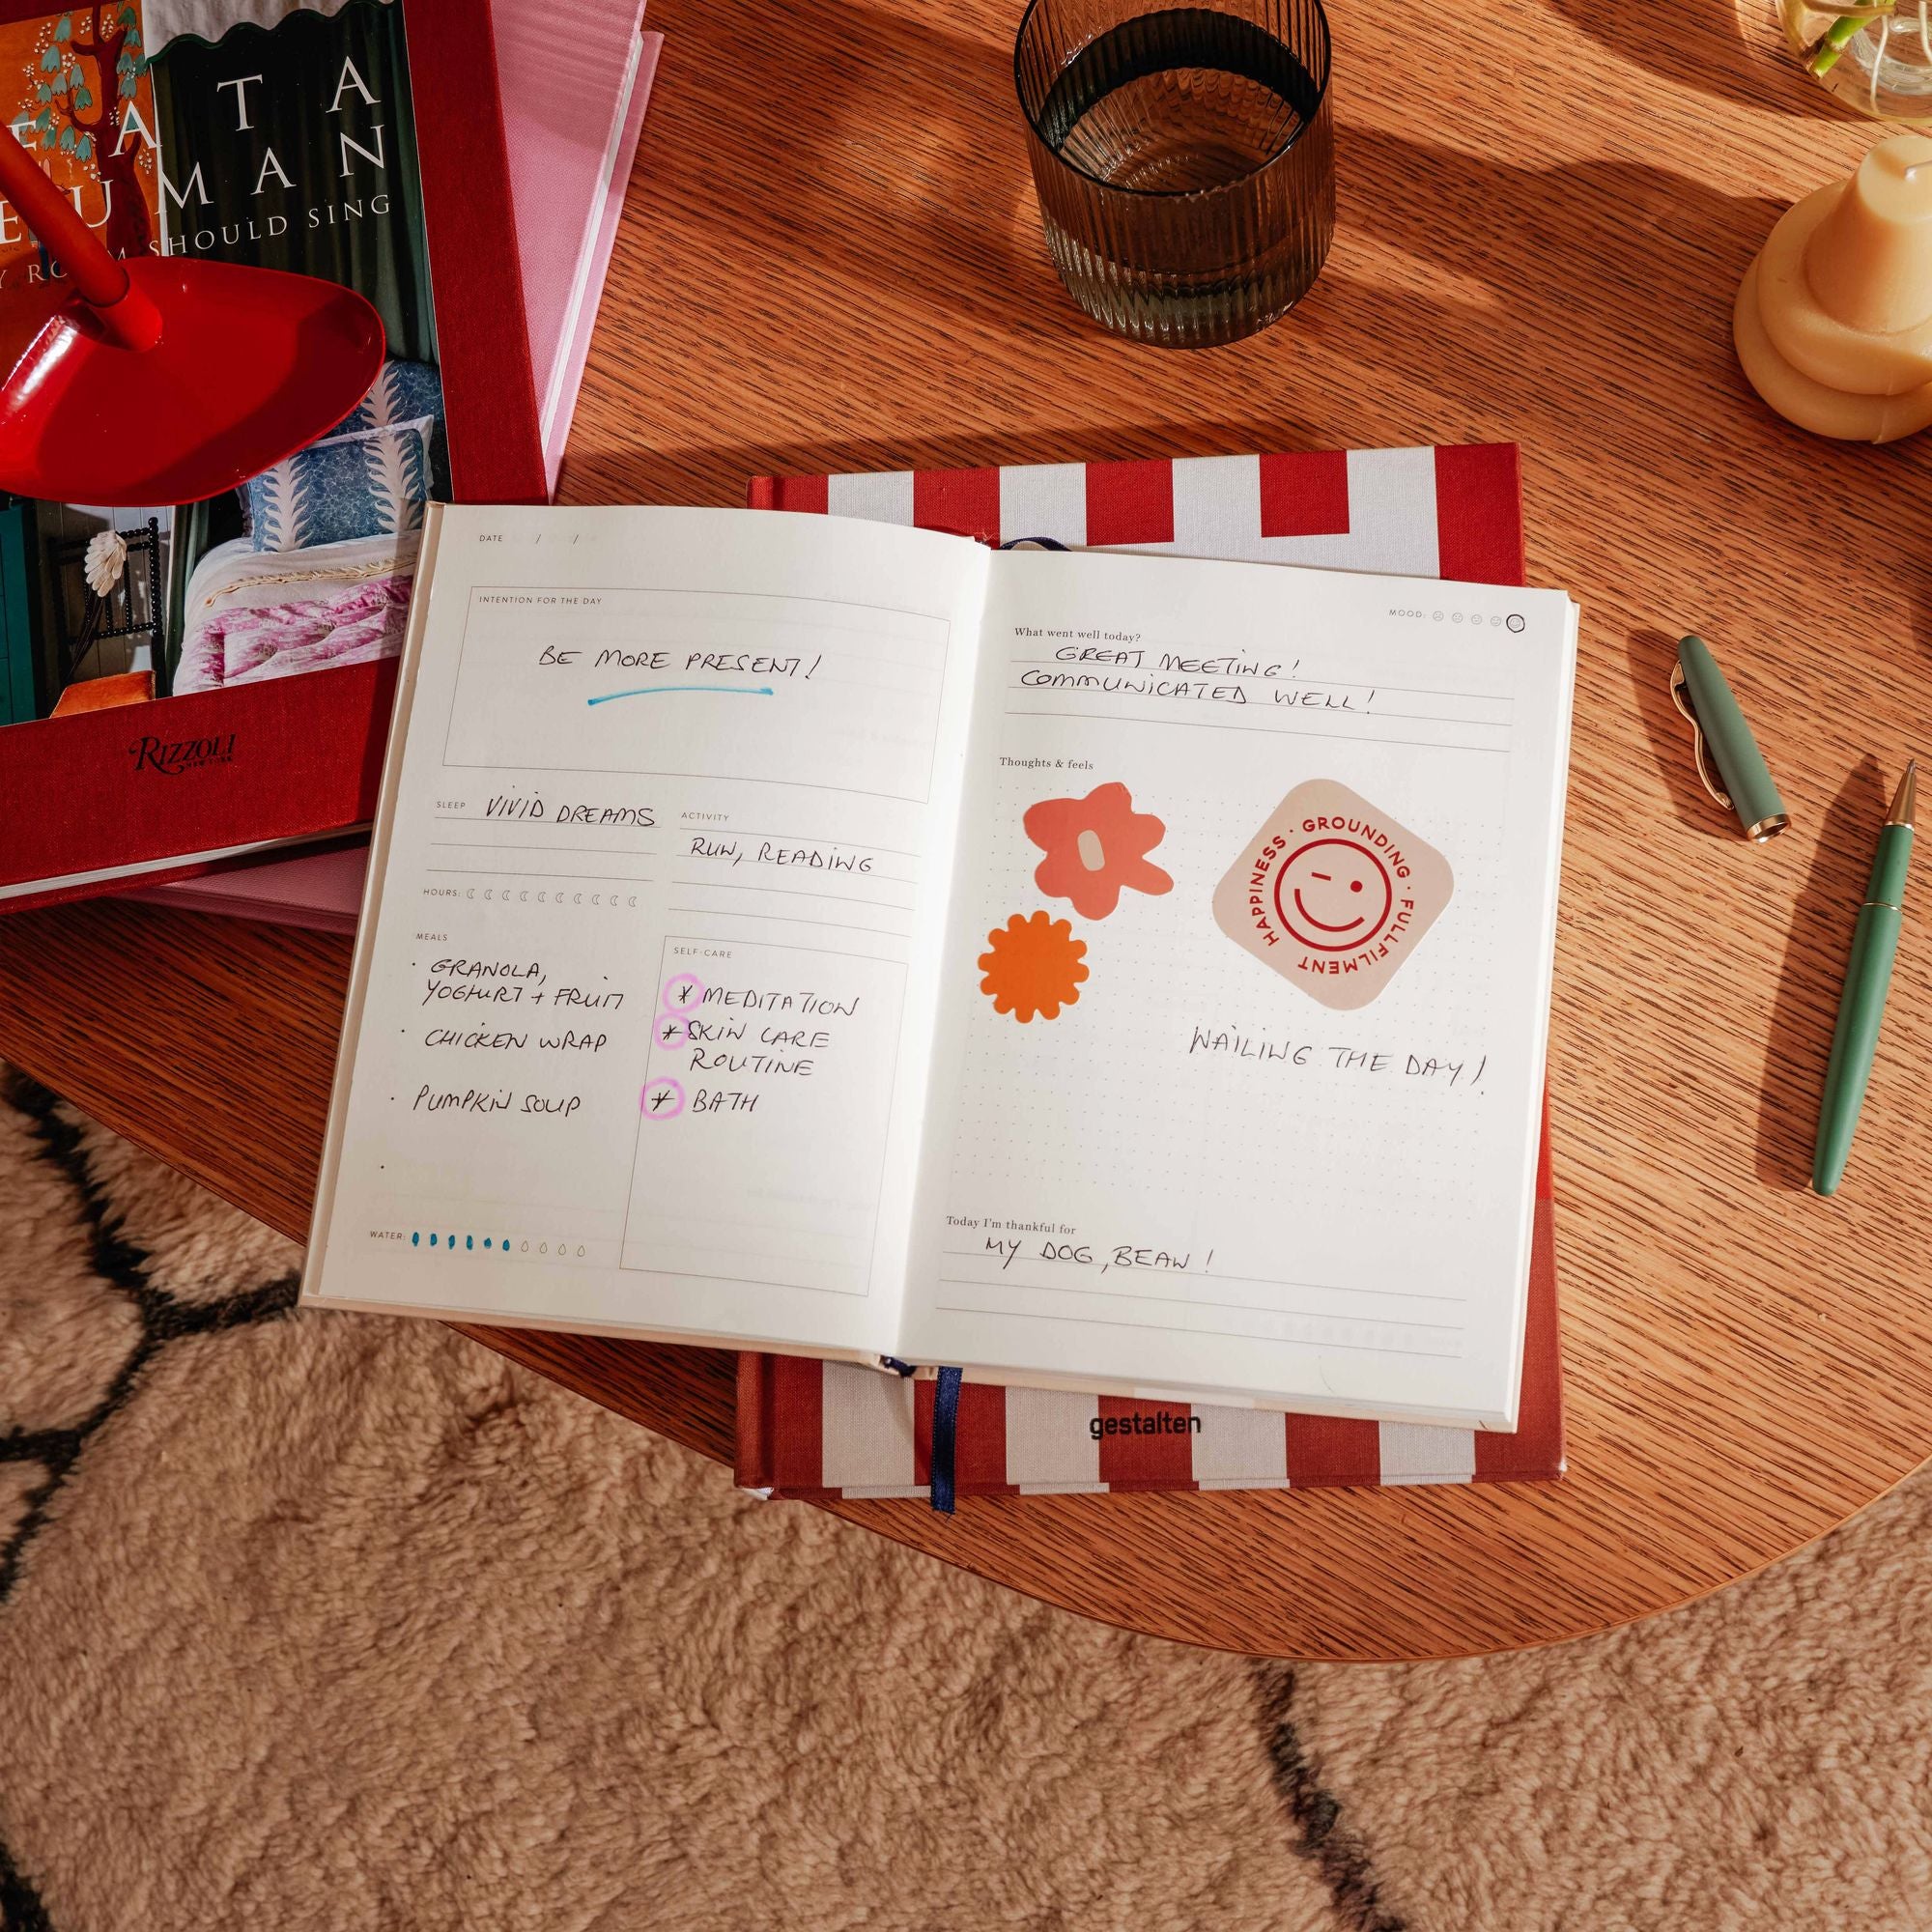 E A T A
E U M A N
Y ROOM SHOULD SING
RIZZOLI
NEW YORK
DATE / /
INTENTION FOR THE DAY
BE MORE PRESENT!
SLEEP VIVID DREAMS
HOURS:
ACTIVITY
RUN, READING
MEALS
· GRANOLA,
YOGHURT + FRUIT
· CHICKEN WRAP
· PUMPKIN SOUP
·
WATER:
SELF-CARE
* MEDITATION
* SKIN CARE
ROUTINE
* BATH
MOOD:
What went well today?
GREAT MEETING!
COMMUNICATED WELL!
Thoughts & feels
HAPPINESS · GROUNDING · FULLFILMENT
NAILING THE DAY!
Today I'm thankful for
MY DOG, BEAN!
gestalten